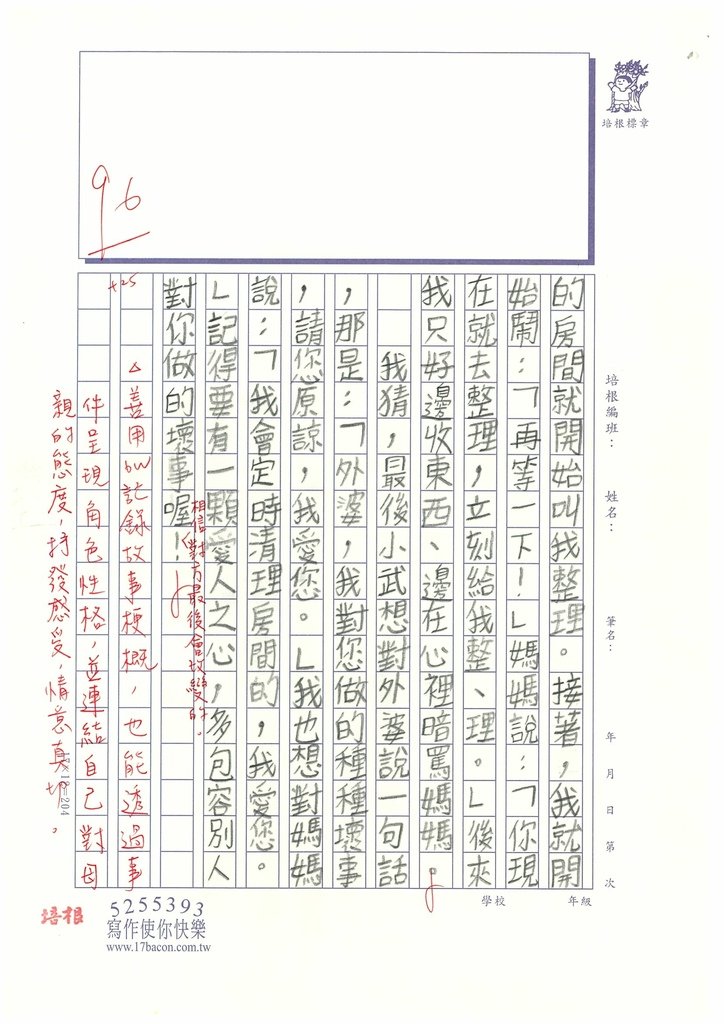 培根標章
96
培根編班：　姓名：　筆名：　年　月　日　第　次
的房間就開始叫我整理。接著，我就開
始鬧：「再等一下！」媽媽說：「你現
在就去整理，立刻給我整、理。」後來
我只好邊收東西、邊在心裡暗罵媽媽。
我猜，最後小武想對外婆說一句話
，那是：「外婆，我對您做的種種壞事
，請您原諒，我愛您。」我也想對媽媽
說：「我會定時清理房間的，我愛您。
」記得要有一顆愛人之心，多包容別人
相信對方最後會改變的。
對你做的壞事喔！
+25
△善用6W記錄故事梗概，也能透過事
件呈現角色性格，並連結自己對母
親的態度，抒發感受，情意真切。
=204
學校　年級
培根
5255393
寫作使你快樂
www.17bacon.com.tw